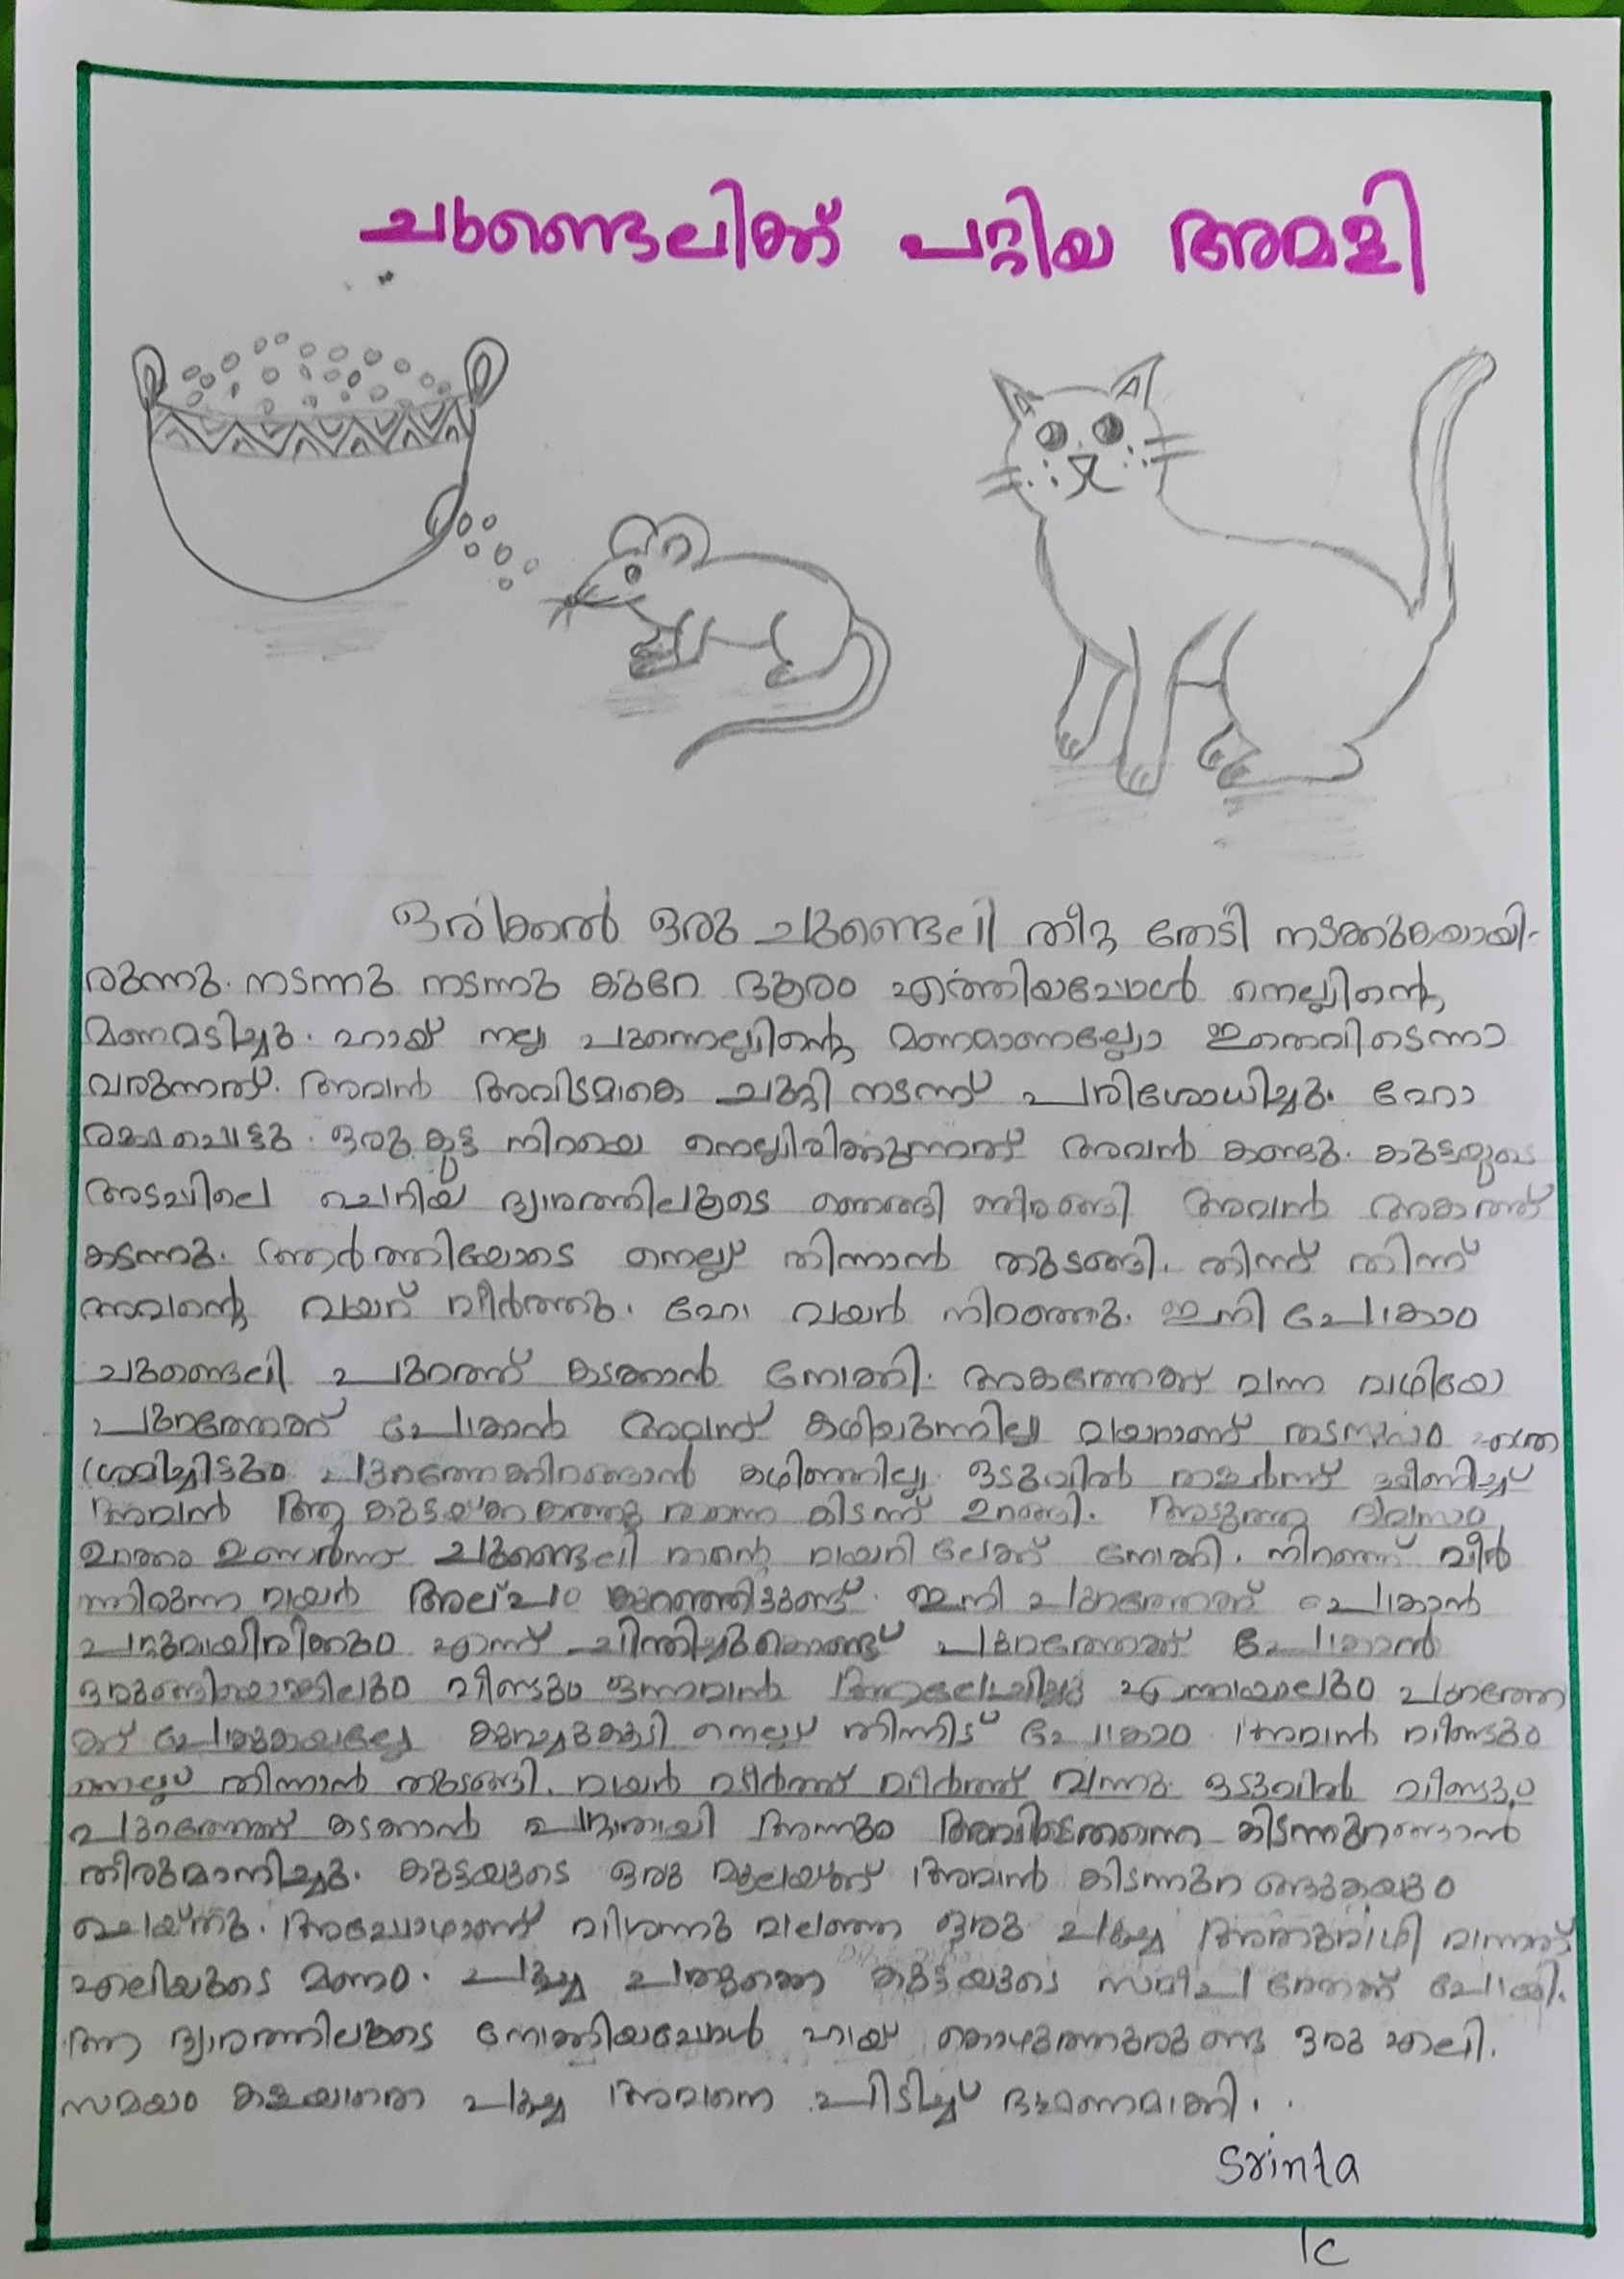 ചുണ്ടെലിക്ക് പറ്റിയ അമളി
ഒരിക്കൽ ഒരു ചുണ്ടെലി തീറ്റ തേടി നടക്കുകയായി-
രുന്നു. നടന്നു നടന്നു കുറേ ദൂരം എത്തിയപ്പോൾ നെല്ലിന്റെ
മണമടിച്ചു. ഹായ് നല്ല പുന്നെല്ലിന്റെ മണമാണല്ലോ ഇതെവിടെന്നാ
വരുന്നത്. അവൻ അവിടമാകെ ചുറ്റി നടന്ന് പരിശോധിച്ചു. ഹോ
രക്ഷപെട്ടു. ഒരു കുട്ട നിറയെ നെല്ലിരിക്കുന്നത് അവൻ കണ്ടു. കുട്ടയുടെ
അടപ്പിലെ ചെറിയ ദ്വാരത്തിലൂടെ ഞെങ്ങി ഞിരങ്ങി അവൻ അകത്ത്
കടന്നു. ആർത്തിയോടെ നെല്ല് തിന്നാൻ തുടങ്ങി. തിന്ന് തിന്ന്
അവന്റെ വയറ് വീർത്തു. ഹോ വയർ നിറഞ്ഞു. ഇനി പോകാം
ചുണ്ടെലി പുറത്ത് കടക്കാൻ നോക്കി. അകത്തേക്ക് വന്ന വഴിയേ
പുറത്തേക്ക് പോകാൻ അവന് കഴിയുന്നില്ല വയറാണ് തടസ്സം എത്ര
ശ്രമിച്ചിട്ടും പുറത്തേക്കിറങ്ങാൻ കഴിഞ്ഞില്ല. ഒടുവിൽ തളർന്ന് ക്ഷീണിച്ച്
അവൻ ആ കുട്ടയ്ക്കകത്തു തന്നെ കിടന്ന് ഉറങ്ങി. അടുത്ത ദിവസം
ഉറക്കം ഉണർന്ന് ചുണ്ടെലി തന്റെ വയറിലേക്ക് നോക്കി. നിറഞ്ഞ് വീർ
ത്തിരുന്ന വയർ അല്പം കുറഞ്ഞിട്ടുണ്ട്. ഇനി പുറത്തേക്ക് പോകാൻ
പറ്റുമായിരിക്കും എന്ന് ചിന്തിച്ചുകൊണ്ട് പുറത്തേക്ക് പോകാൻ
ഒരുങ്ങിയെങ്കിലും വീണ്ടും ഒന്നവൻ ആലോചിച്ചു എന്തായാലും പുറത്തേ
ക്ക് പോകുകയല്ലേ കുറച്ചുകൂടി നെല്ല് തിന്നിട്ട് പോകാം അവൻ വീണ്ടും
നെല്ല് തിന്നാൻ തുടങ്ങി. വയർ വീർത്ത് വീർത്ത് വന്നു. ഒടുവിൽ വീണ്ടും
പുറത്തേക്ക് കടക്കാൻ പറ്റാതായി അന്നും അവിടെത്തന്നെ കിടന്നുറങ്ങാൻ
തീരുമാനിച്ചു. കുട്ടയുടെ ഒരു മൂലയ്ക്ക് അവൻ കിടന്നുറങ്ങുകയും
ചെയ്തു. അപ്പോഴാണ് വിശന്നു വലഞ്ഞ ഒരു പൂച്ച അതുവഴി വന്നത്
എലിയുടെ മണം. പൂച്ച പതുക്കെ കുട്ടയുടെ സമീപത്തേക്ക് പോയി.
ആ ദ്വാരത്തിലൂടെ നോക്കിയപ്പോൾ ഹായ് കൊഴുത്തുരുണ്ട ഒരു എലി.
സമയം കളയാതെ പൂച്ച അവനെ പിടിച്ച് ഭക്ഷണമാക്കി..
Srinta
1c